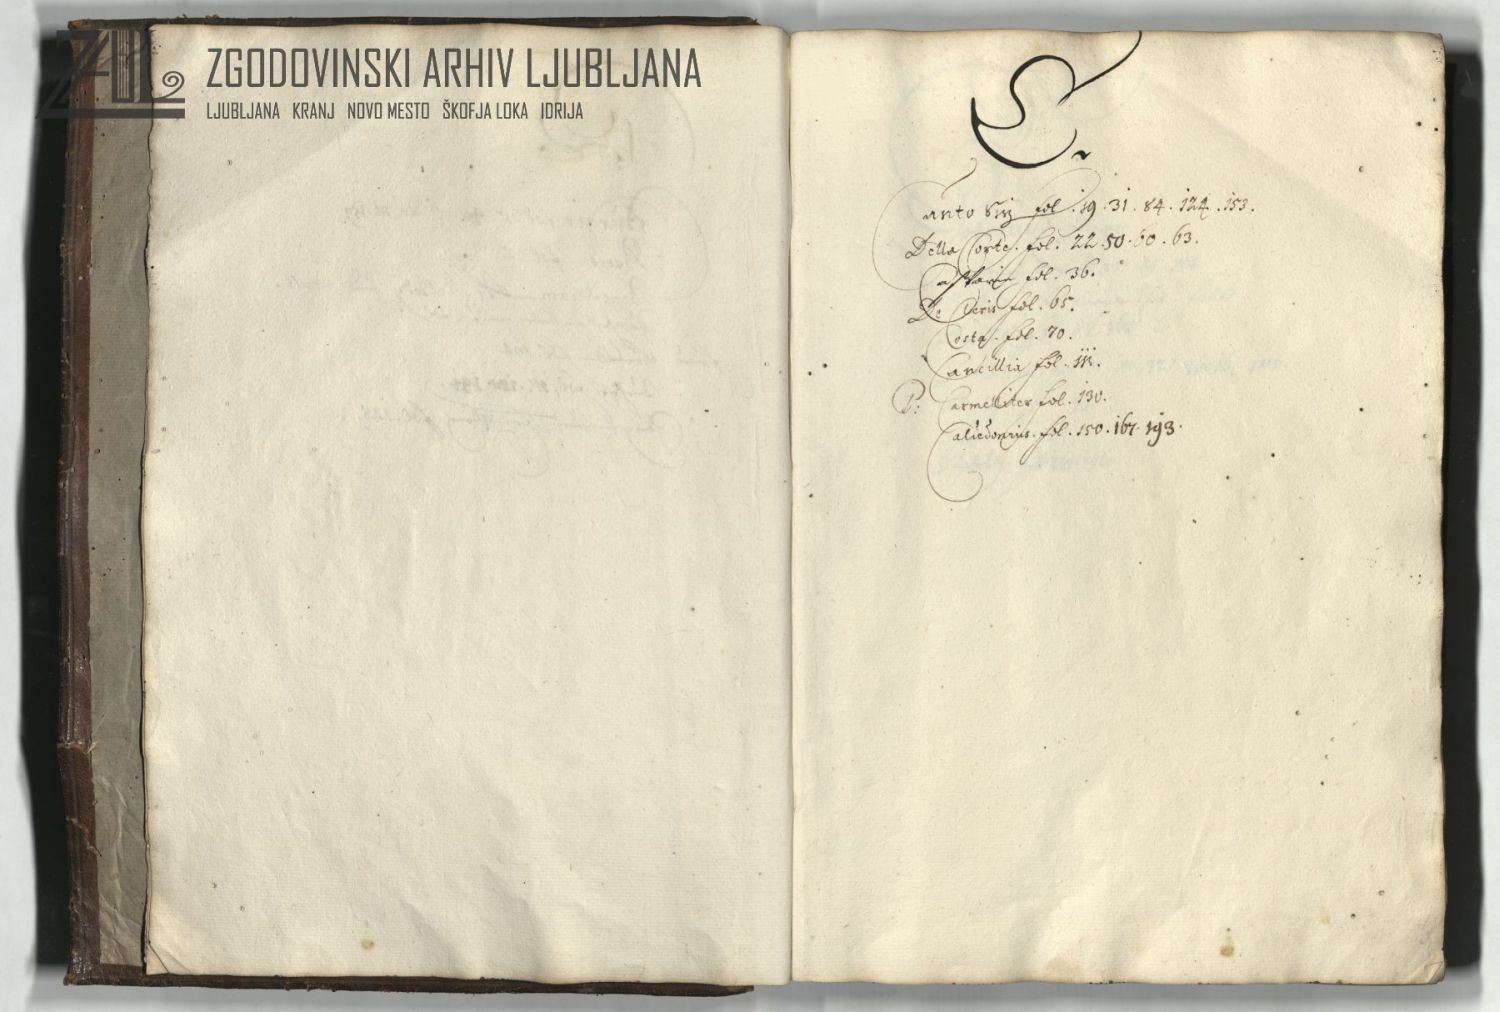 ZGODOVINSKI ARHIV LJUBLJANA
LJUBLJANA KRANJ NOVO MESTO ŠKOFJA LOKA IDRIJA
C.
Canto fol. 19. 31. 84. 124. 153.
Della Corte. fol. 22. 50. 60. 63.
fol. 36.
De Ceris fol. 65.
Costa. fol. 70.
Cancillia fol. 111.
P: Carmeliter fol. 130.
Calcedonius. fol. 150. 167. 193.